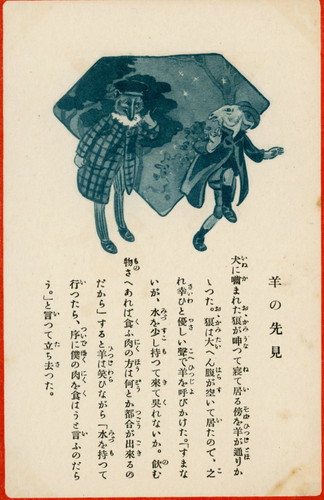 羊の先見
犬に嚙まれた狼が呻つて寝て居る傍を羊が通りか
ゝつた。狼は大へん腹が空いて居たので、之
れ幸ひと優しい聲で羊を呼びかけた。「すまな
いが、水を少し持つて來て呉れないか。飮む
物さへあれば食ふ肉の方は何とか都合が出來るの
だから」すると羊は笑ひながら「水を持つて
行つたら、序に僕の肉を食はうと言ふのだら
う。」と言つて立ち去つた。